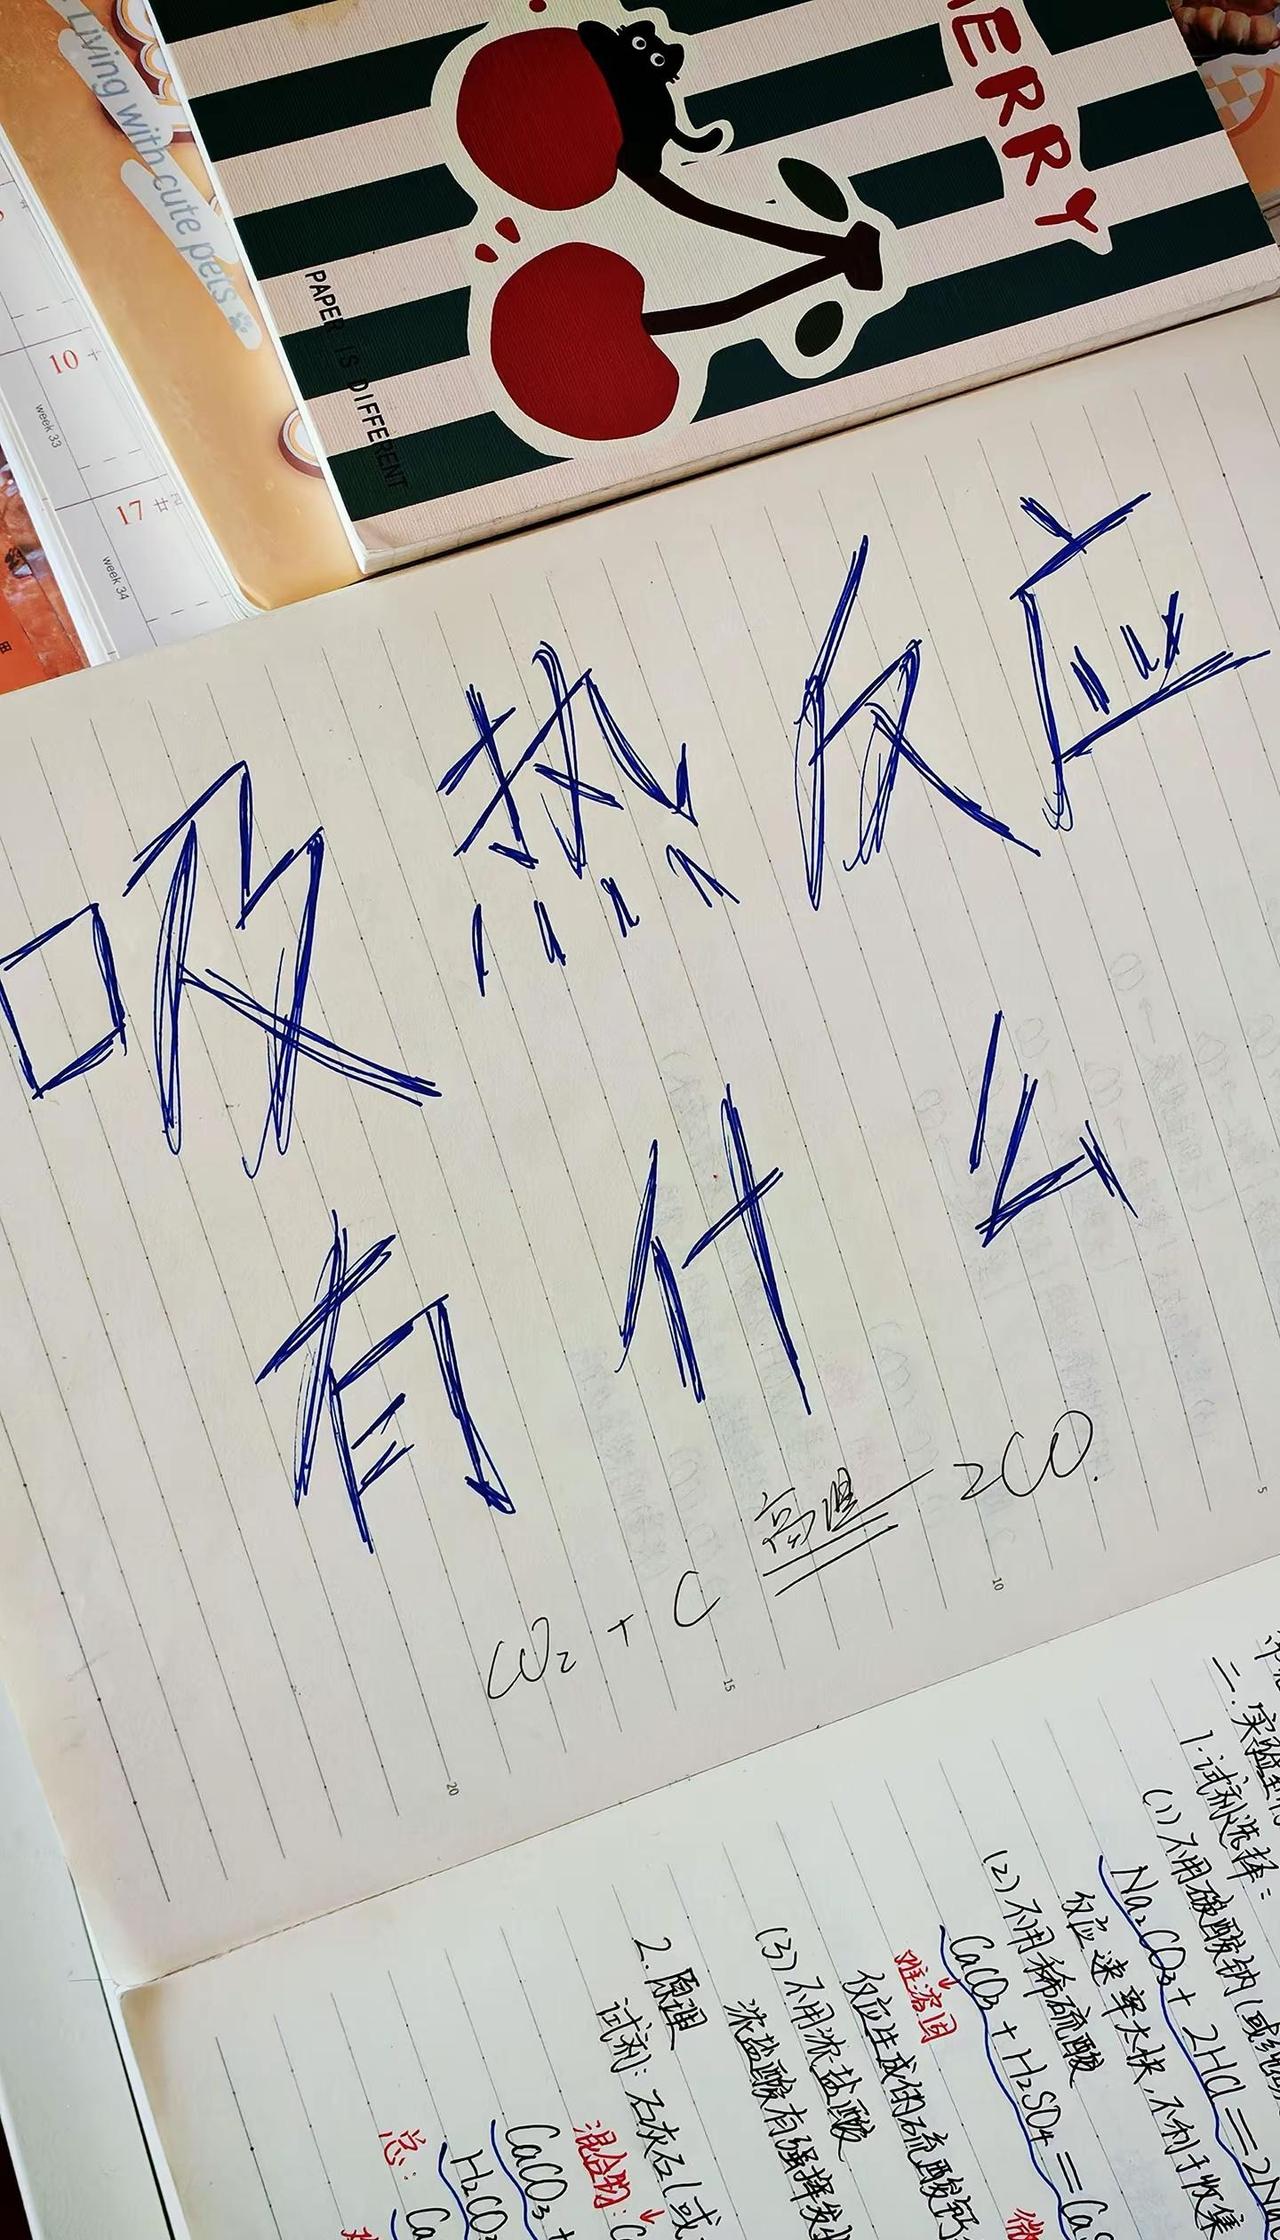 Living with cute pets
10 十
week 33
17 廿
week 34
ERRY
PAPER IS DIFFERENT
吸热反应
有什么
CO₂ + C 高温 2CO.
5
10
15
20
1.试剂选择:
(1)不用碳酸钠(或
Na₂CO₃+2HCl=2Na
反应速率太快,不利于收集
(2)不用稀硫酸
CaCO₃+H₂SO₄=Cas
难溶固
反应生成的硫酸钙
(3)不用浓盐酸
浓盐酸有强挥发
2.原理
试剂:石灰石(或
混合物:
CaCO₃+
H₂CO₃
总:Ca